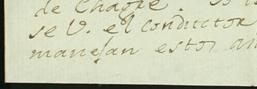 de Chagre.
se V. el conductor
manejan estos an